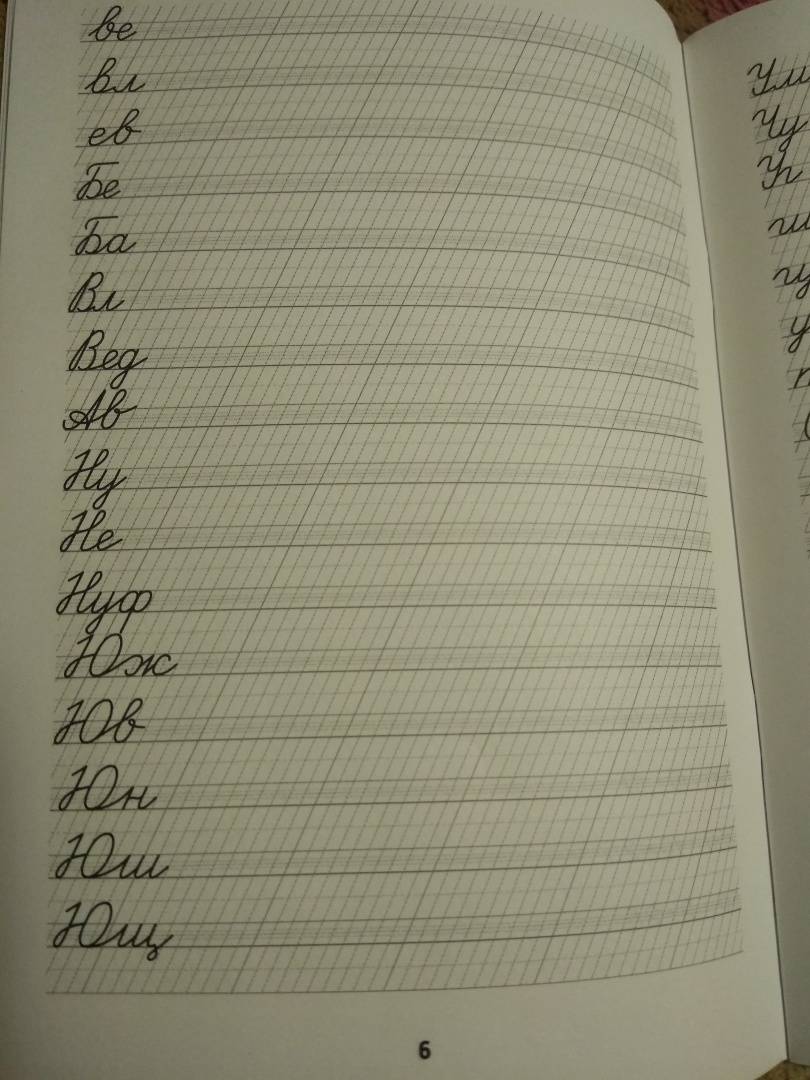 ве
вл
ев
Бе
Ба
Вл
Вед
Ав
Ну
Не
Нуф
Юж
Юв
Юн
Юш
Ющ
6
Чу